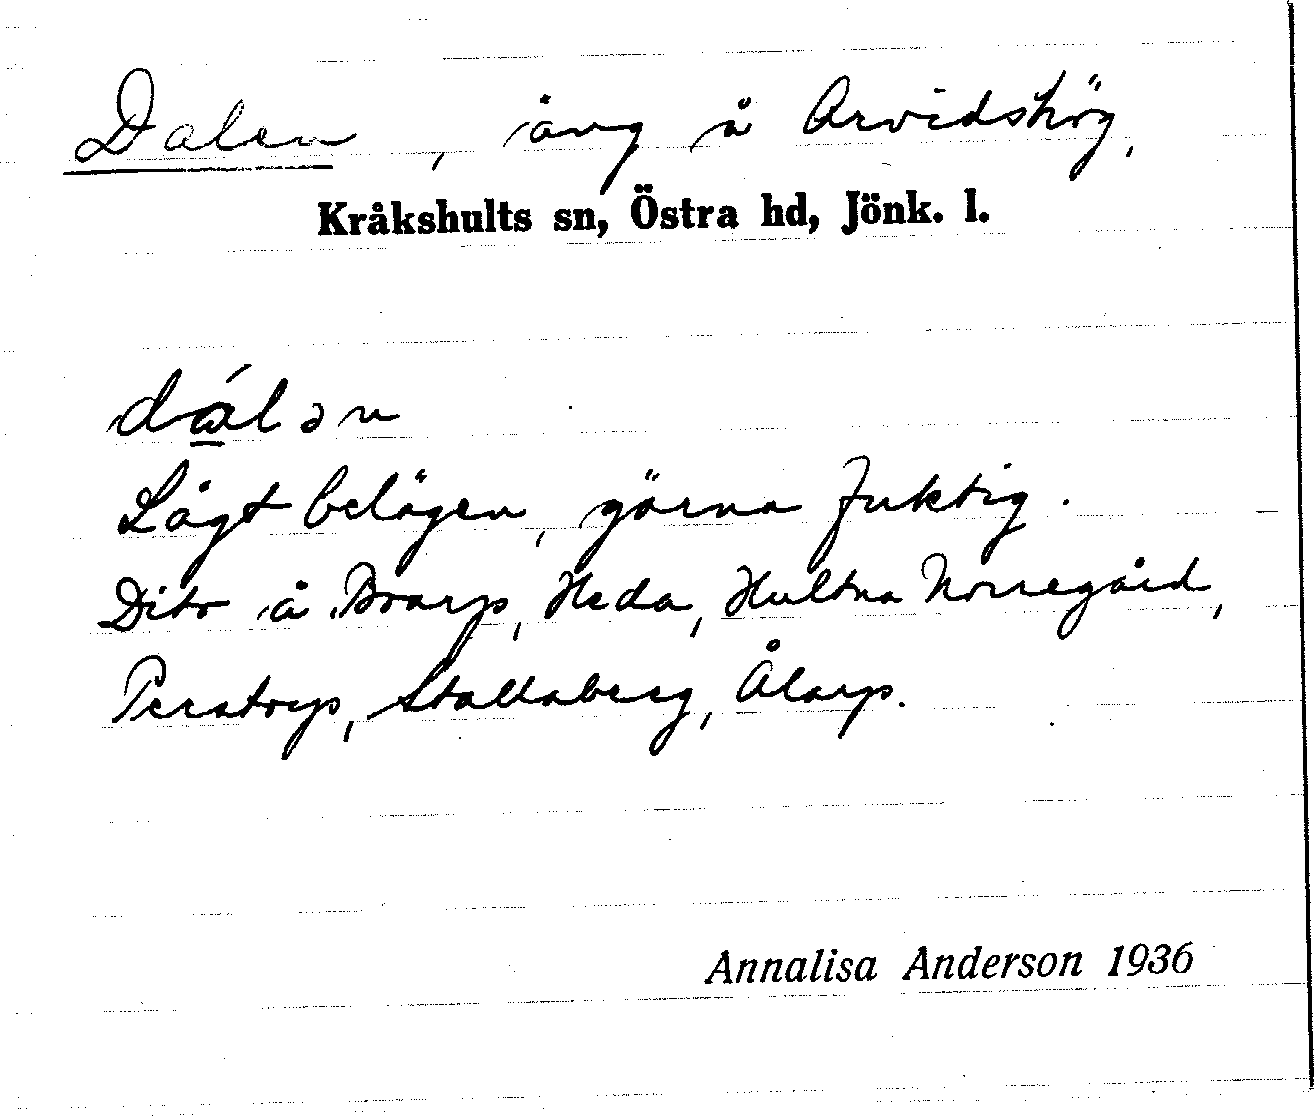 Dalen, äng å Arvidshög,
Kråkshults sn, Östra hd, Jönk. l.
dálən
Lågt belägen, gärna fuktig.
Dito å Braarp, Heda, Hultna Norregård,
Perstorp, Stallaberg, Ålarp.
Annalisa Anderson 1936